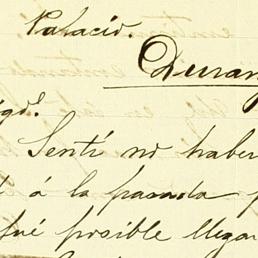 Palacio.
Duran
igo.
Sentí no haber
á la pasada p
fué posible llegar